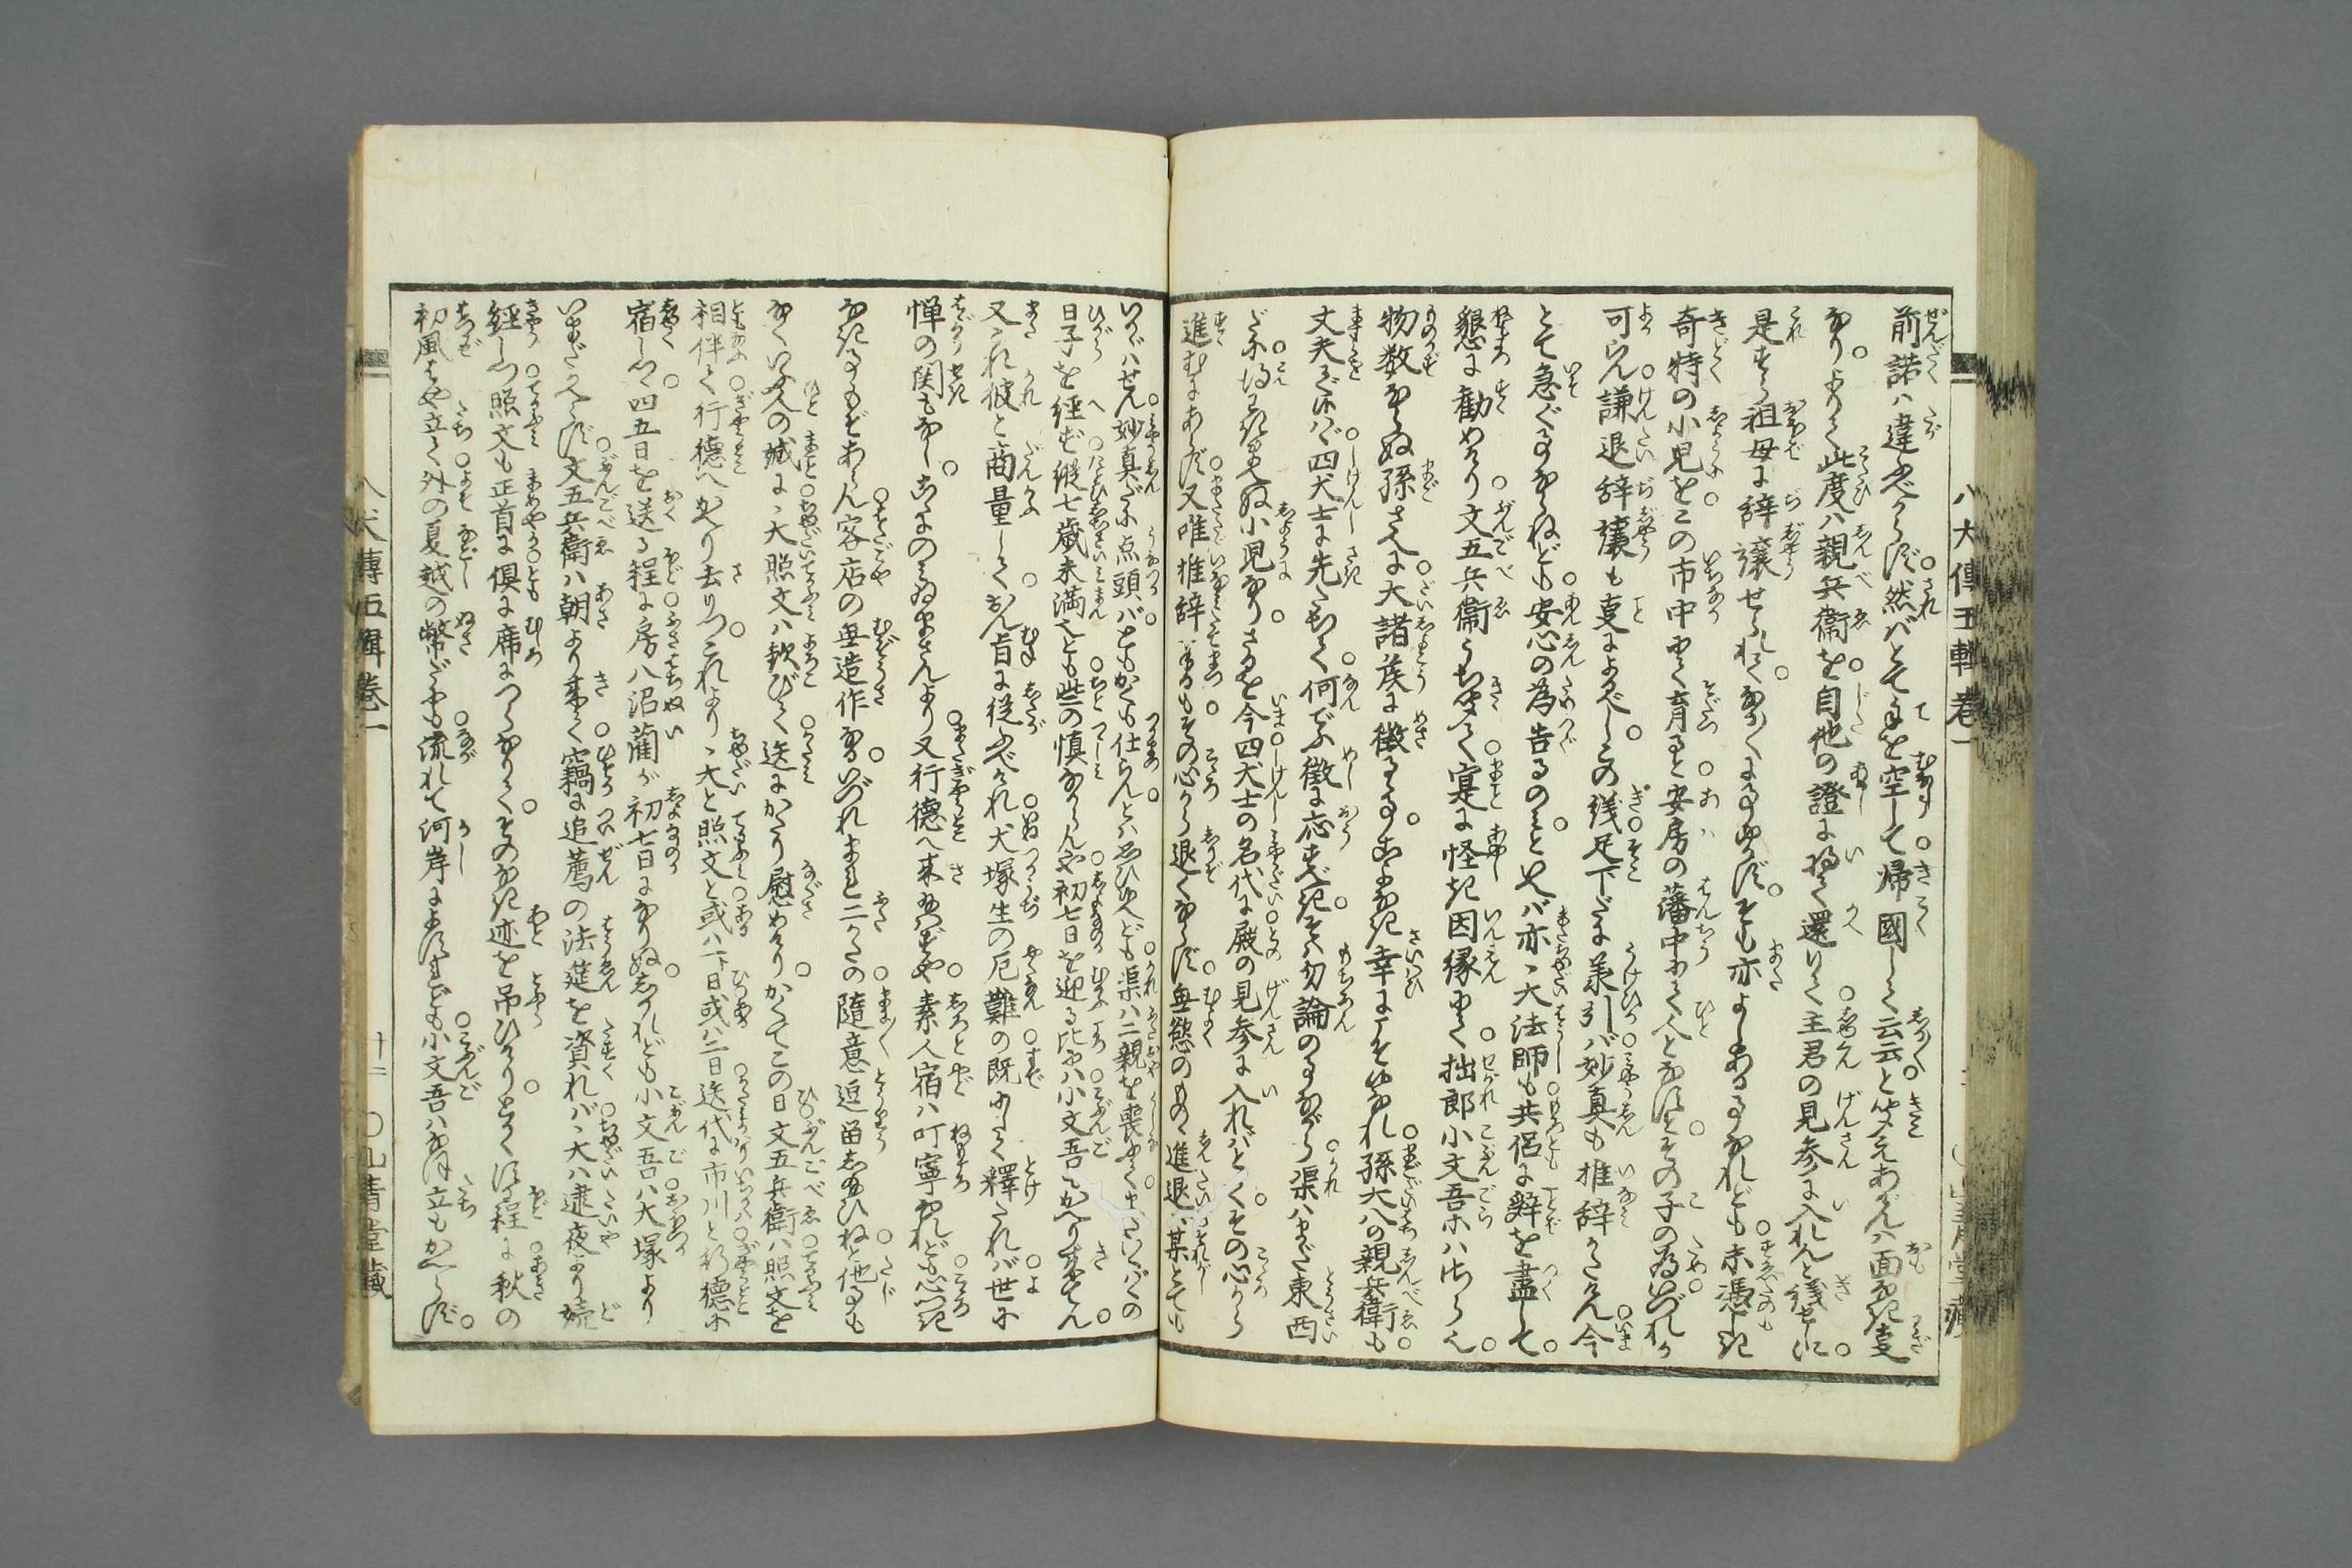 前諾ハ違ふべからず然バとて手を空しして帰國しく云云と聞えあげんハ面なき違
なりよりて此度ハ親兵衛を自他の證に将て還りて主君の見参に入れんと議せしに
是すら祖母に辞讓せられてなかくに事ゆかずそも亦よしある事なれども未憑しき
奇特の小児をこの市中にて育ると安房の藩中にて人となすとその子の為いづれか
可らん謙退辞讓も事によるべしこの義足下だに承引バ妙真も推辞かたけん今
とて急ぐ事ならねども安心の為告るのミといへバ亦丶大法師も共侶に辞を盡して
懇に勧めけり文五兵衛うち聞て寔に怪き因縁にて拙郎小文吾等ハ御らん
物数ならぬ孫さへに大諸侯に徴るゝ事こよなき幸にこそ候なれ孫大八の親兵衛も
丈夫ならバ四犬士に先たちて何でふ徴に応ずべきそハ勿論の事ながら渠ハまだ東西
だに得弁へぬ小児なりさるを今四犬士の名代に殿の見参に入れバとてその心から
進むにあらず又唯推辞まうすもその心から退くならず無慾のものゝ進退ハ某とても
いかゞハせん妙真だに点頭バともかくも仕らんとハ思ひ候へども渠ハ二親を喪てまだいくバくの
日子を経ず縦七歳未満也とも些の慎なからんや初七日を迎る比にハ小文吾もかへり来てん
又これ彼と商量しておん旨に従ふべけれ犬塚生の厄難の既にかく釋たれバ世に
憚の関もなしこゝにのミゐまさんより又行徳へ来給ハずや素人宿ハ叮寧なれども心つき
なき事もぞあらん客店の無造作なるいづれまれ二かたの隨意逗留し給ひねと他事も
なくいふ人の誠に丶大照文ハ歓びて送にかたり慰めけりかくてこの日文五兵衛ハ照文を
相伴て行徳へかへり去りつこれより丶大と照文と或ハ一日或ハ二日送代に市川と行徳に
宿しつゝ四五日を送る程に房八沼藺が初七日になりぬしかれども小文吾ハ大塚より
いまだかへらず文五兵衛ハ朝より来て竊に追薦の法筵を資れバ丶大ハ逮夜より読
經しつ照文も正首に倶に席につらなりてその亡き迹を吊ひけりとかくする程に秋の
初風はや立て外の夏越の幣だにも流れて河岸によすれども小文吾ハなほ立もかへらず
八犬傳五輯巻一
十二
〇山青堂藏
八犬傳五輯巻一